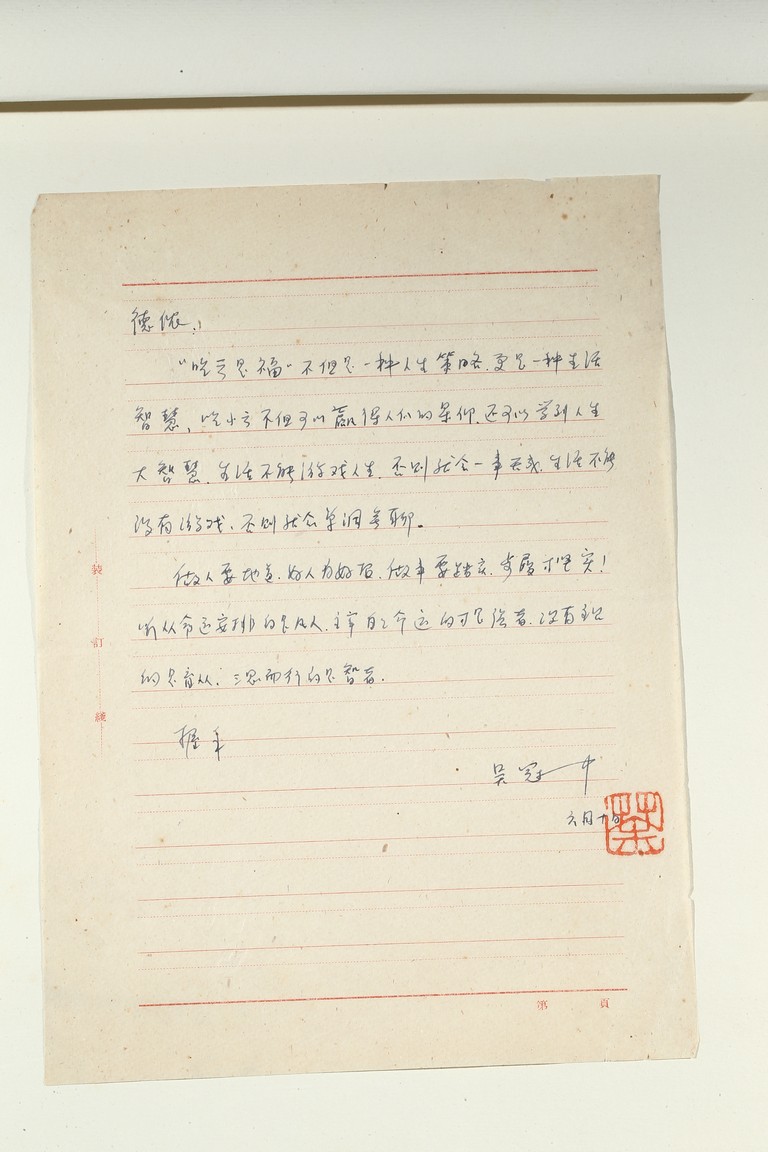 德侬：
"吃亏是福"不但是一种人生策略，更是一种生活
智慧，吃小亏不但可以赢得人们的景仰，还可以学到人生
大智慧。生活不能游戏人生，否则就会一事无成，生活不能
没有游戏，否则就会单调无聊。
做人要地道，好人为好报，做事要踏实，步履才坚实！
听从命运安排的是凡人，主宰自己命运的才是强者，没有主见
的是盲从，三思而行的是智者。
握手
吴冠中
六月十日
装
訂
綫
第 頁